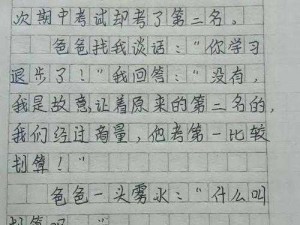 次期中考试却考了第二名。
爸爸找我谈话：“你学习
退步了！”我回答：“没有，
我是故意让着原来的第二名的，
我们经过商量，他考第一比较
划算！”
爸爸一头雾水：“什么叫
划算呢